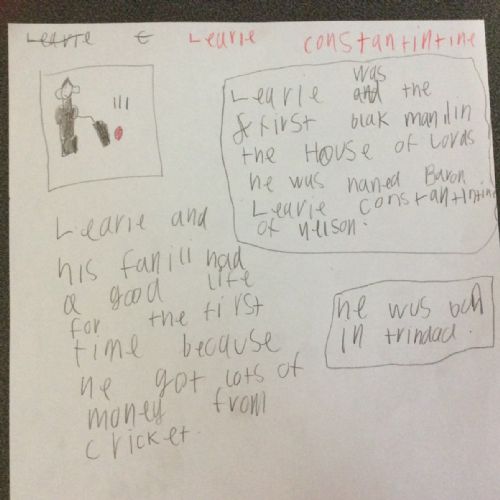 Learie C Learie constantintine
Learie was the
first blak man in
the House of Lords
he was named Baron
Learie constantintine
of nelson.
Learie and
his famili had
a good life
for the first
time because
he got lots of
money from
cricket.
he wus bon
in trindad.